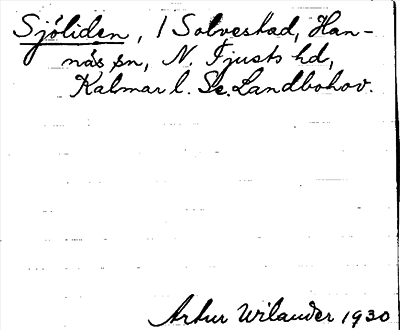 Sjöliden, 1 Solvestad, Han-
nås sn, N. Tjusts hd,
Kalmar l. Se. Landbohov.
Artur Wilander 1930